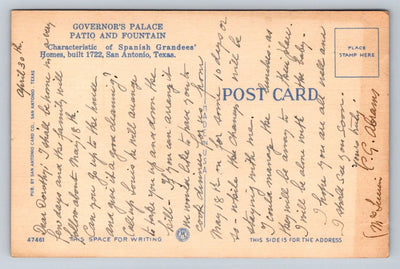 GOVERNOR'S PALACE
PATIO AND FOUNTAIN
Characteristic of Spanish Grandees'
Homes, built 1722, San Antonio, Texas.
PLACE
STAMP HERE
POST CARD
PUB. BY SAN ANTONIO CARD CO., SAN ANTONIO, TEXAS
47461
THIS SPACE FOR WRITING
THIS SIDE IS FOR THE ADDRESS
April 30th.
Dear Dorothy, I shall be home in a very
few days and the family will
follow about May 18th.
Can you go up to the house
and give it a good cleaning?
Call up Louis he will arrange
to take you up and down the
hill - If you can arrange it
we would like to have you to
cook dinner for us from
May 18th on for some 10 days or
so - while the change will be
staying with me.
I could manage the as
they will be away to their place.
I will be alone with the baby.
I hope you are all well and
I shall see you soon.
Yours truly,
C. G. Abrams